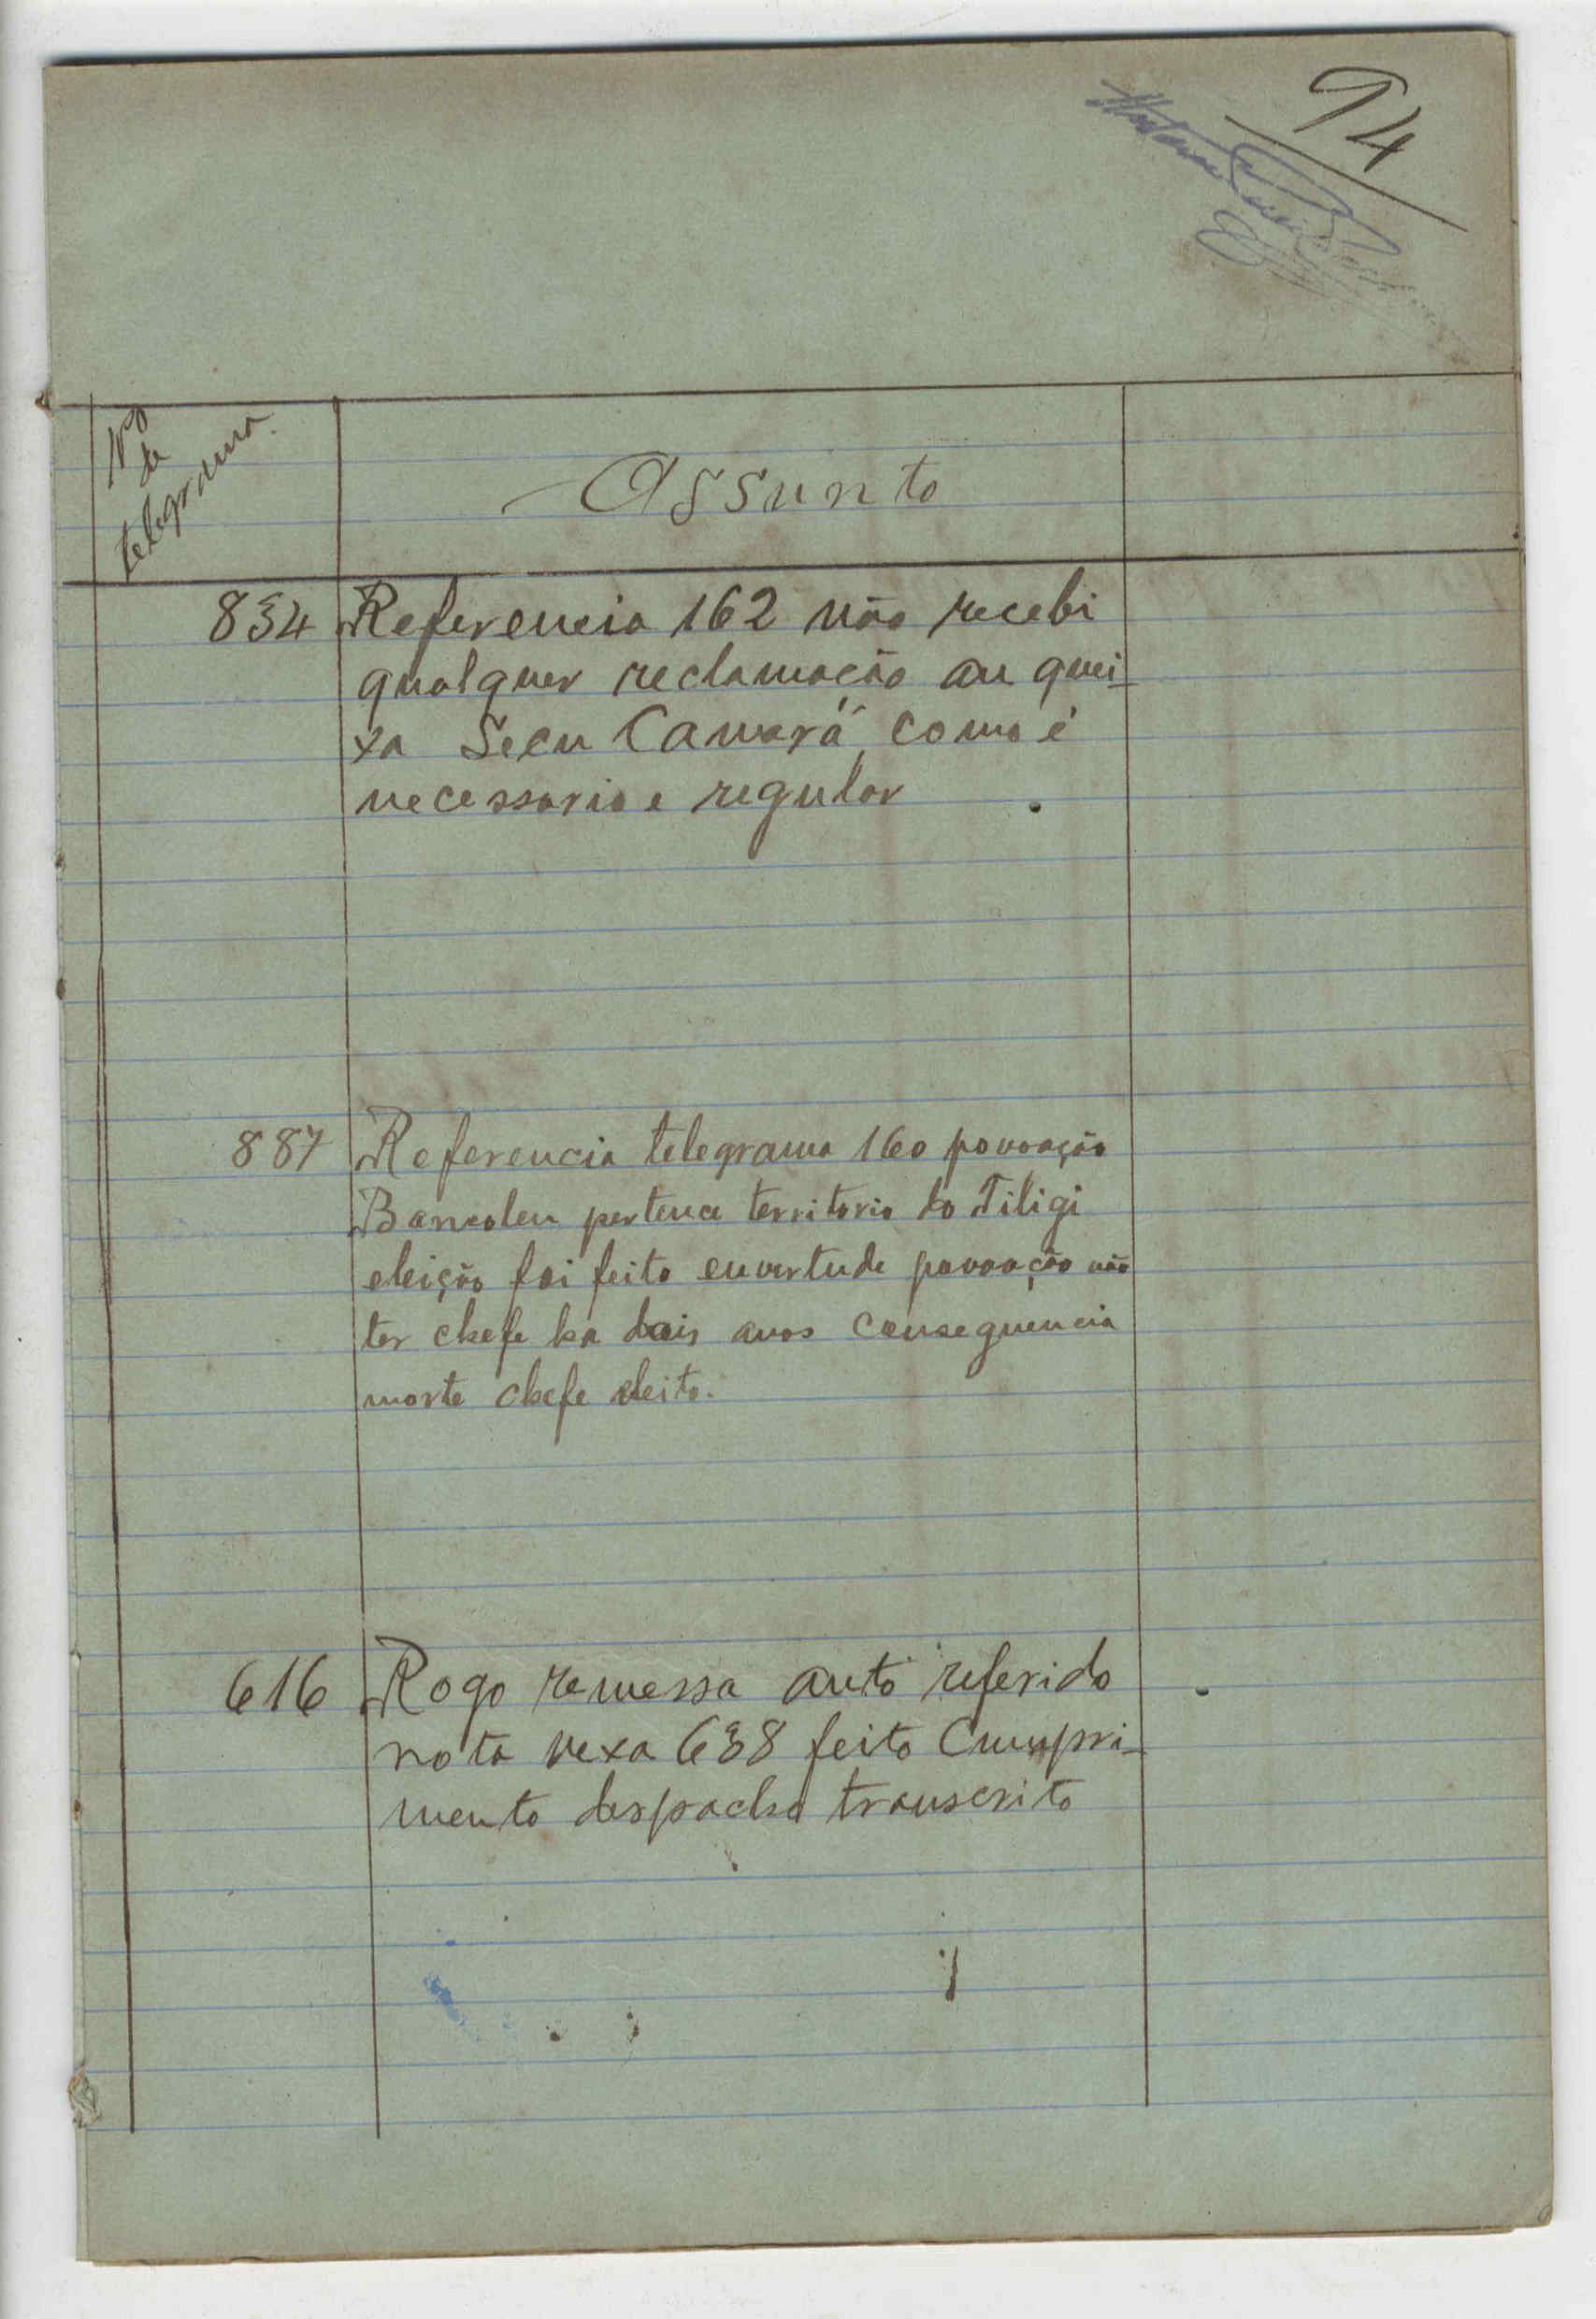 94
Nº
de
telegrama.
Assunto
834 Referencia 162 não recebi
qualquer reclamação ou quei-
xa Secu Camará como é
necessario e regular
887 Referencia telegrama 160 povoação
pertence territorio do Tiligi
eleição foi feita envertude povoação não
ter chefe ha dois anos consequencia
morte chefe eleito.
616 Rogo remessa auto referido
nota vexa 638 feito Cumpri-
mento despacho transcrito